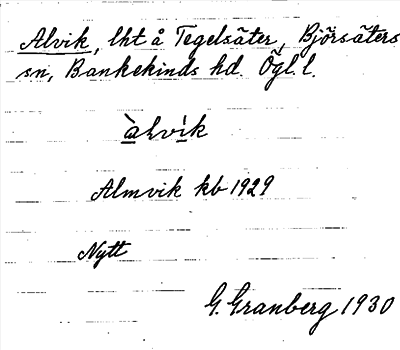 Alvik, lht å Tegelsäter, Björsäters
sn, Bankekinds hd. Ögl. l.
àlvìk
Almvik kb 1929
Nytt
G. Granberg 1930